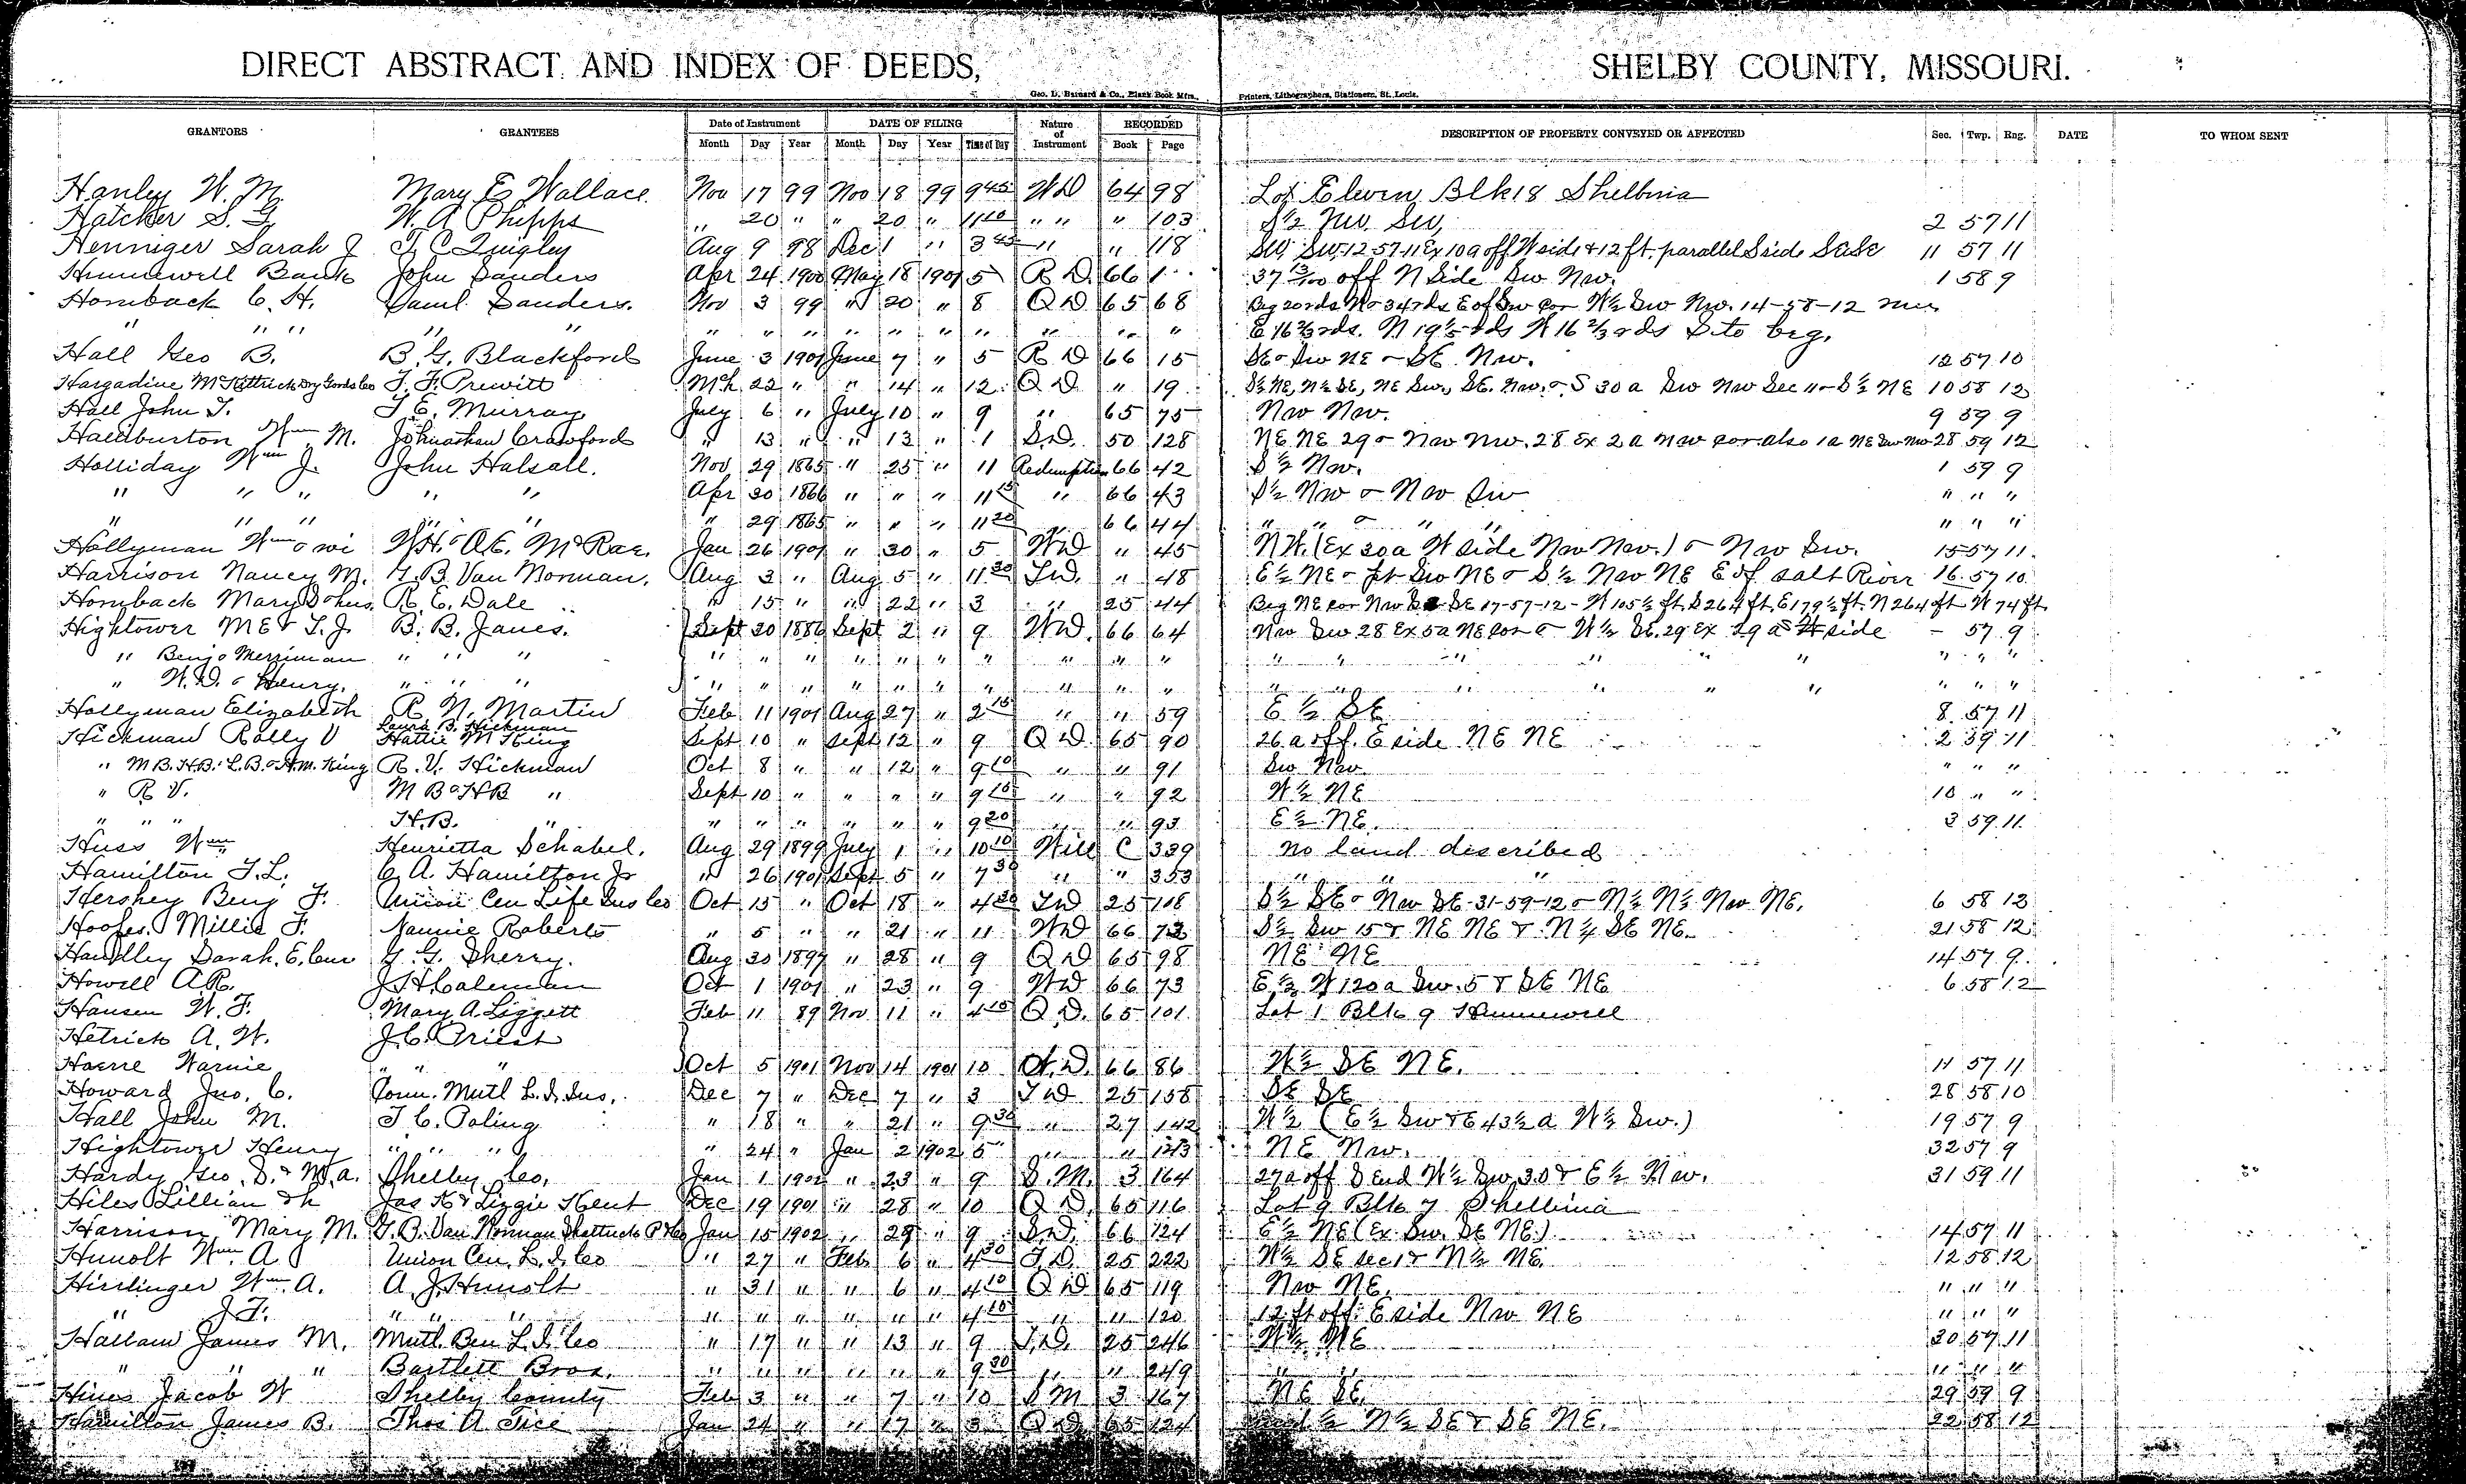 DIRECT ABSTRACT AND INDEX OF DEEDS, SHELBY COUNTY, MISSOURI.
Geo. D. Barnard & Co., Blank Book Mfrs., Printers, Lithographers, Stationers, St. Louis.
GRANTORS GRANTEES Date of Instrument DATE OF FILING Nature of Instrument RECORDED DESCRIPTION OF PROPERTY CONVEYED OR AFFECTED Sec. Twp. Rng. DATE TO WHOM SENT
Month Day Year Month Day Year Time of Day Book Page
Hanley W. M. Mary E Wallace. Nov 17 99 Nov 18 99 9 45 WD 64 98 Lot Eleven Blk 18 Shelbina
Hatcher S. G W. A Phipps " 20 " " 20 " 11 10 " " " 103 S ½ Nw. Sw, 2 57 11
Henniger Sarah J T. C Quigley Aug 9 98 Dec 1 " 3 45 " " 118 Sw, Sw, 12-57-11 Ex 10a off W side & 12 ft. parallel S side SE SE 11 57 11
Hunnewell Bank John Sanders Apr 24 1900 May 18 1901 5 R D. 66 1 37 13/100 off N Side Sw Nw. 1 58 9
Hornback C. H. Saml Sanders. Nov 3 99 " 20 " 8 Q D 65 68 Beg 20 rds N & 34 rds E of Sw Cor W ½ Sw Nw. 14-58-12 run
" " " " " " " " " " " " " " " E 16 ⅔ rds. N 19 ⅕ rds W 16 ⅔ rds S to beg.
Hall Geo B. B. G. Blackford June 3 1901 June 7 " 5 R D 66 15 SE & Sw NE & SE Nw. 12 57 10
Hargadine McKittrick Dry Goods Co T. F. Prewitt Mch 22 " " 14 " 12 Q D " 19 S ½ NE, N ½ SE, NE Sw., SE. Nw. & S 30 a Sw Nw Sec 11 & S ½ NE 10 58 12
Hall John T. T E. Murray July 6 " July 10 " 9 " 65 75 Nw Nw. 9 59 9
Haliburton Wm M. Johnathan Crawford " 13 " " 13 " 1 S.D. 50 128 NE NE 29 & Nw Nw. 28 Ex 2 a Nw cor also 1a NE Sw Nw 28 59 12
Holliday Wm J. John Halsall. Nov 29 1865 " 25 " 11 Redemption 66 42 S ½ Nw. 1 59 9
" " " " " Apr 30 1866 " " " 11 15 " 66 43 S ½ Nw & Nw Sw " " "
" " " " " " 29 1865 " " " 11 20 66 44 " " & " " " " "
Hollyman Wm & wi W.H. & A.E. McRae. Jan 26 1901 " 30 " 5 WD " 45 NW. (Ex 30a W side Nw Nw.) & Nw Sw. 15 57 11
Harrison Nancy M. G. B. Van Norman. Aug 3 " Aug 5 " 11 30 T.D. " 48 E ½ NE & pt Sw NE & S ½ Nw NE E of Salt River 16 57 10
Hornback Mary S & hus. R. E. Dale " 15 " " 22 " 3 " 25 44 Beg NE cor Nw SE 17-57-12 - W 105 ½ ft. S 264 ft, E 179 ½ ft. N 264 ft W 74 ft
Hightower M E & T. J. B. B. Janes. Sept 20 1886 Sept 2 " 9 WD. 66 64 Nw Sw 28 Ex 5a NE Cor & W ½ SE. 29 Ex 29 as W side - 57 9
" Benj & Merriman " " " " " " " " " " " " " " " " " " " " " "
" W. D. & Henry. " " " " " " " " " " " " " " " " " " " " " "
Hollyman Elizabeth R. N. Martin Feb 11 1901 Aug 27 " 2 15 " " 59 E ½ SE 8 57 11
Laura B. Hickman
Hickman Rolly V Hattie M King Sept 10 " Sept 12 " 9 Q D 65 90 26 a off. E side NE NE 2 59 11
" M B. H. B. L. B. & H. M. King R. V. Hickman Oct 8 " " 12 " 9 10 " " 91 Sw Nw. " " "
" R V. M B & H B " Sept 10 " " " " 9 15 " " 92 W ½ NE 10 " "
" " " H. B. " " " " " " " 9 20 " " 93 E ½ NE. 3 59 11
Huss Wm Henrietta Schabel. Aug 29 1899 July 1 " 10 10 Will C 339 No land described
Hamilton F. L. C. A. Hamilton Jr " 26 1901 Sept 5 " 7 30 " " 353 " " "
Hershey Benj F. Union Cen Life Ins Co Oct 15 " Oct 18 " 4 30 T.D 25 108 S ½ SE & Nw SE 31-59-12 & N ½ N ½ Nw NE. 6 58 12
Hoofer. Millie F. Nannie Roberts " 5 " " 21 " 11 WD 66 72 S ½ Sw 15 & NE NE & N ½ SE NE. 21 58 12
Handley Sarah. E. G. G. Sherry. Aug 30 1897 " 28 " 9 Q D 65 98 NE NE 14 57 9
Howell A. R. J H Coleman Oct 1 1901 " 23 " 9 WD 66 73 E ½ W 120 a Sw. 5 & SE NE 6 58 12
Hansen W. F. Mary A. Liggett Feb 11 89 Nov 11 " 4 15 Q D. 65 101 Lot 1 Blk 9 Hunnewell
Hetrick A. W. J. C. Priest
Haerre Warnie " " " Oct 5 1901 Nov 14 1901 10 W. D. 66 86 W ½ SE NE. 11 57 11
Howard Jno. C. Conn. Mutl L. I. Ins. Dec 7 " Dec 7 " 3 T D 25 158 SE SE 28 58 10
Hall John M. T. C. Poling " 18 " " 21 " 9 30 " 27 142 W ½ (E ½ Sw & E 43 ½ a W ½ Sw.) 19 57 9
Hightower Henry " " " " 24 " Jan 2 1902 5 " " 143 NE Nw. 32 57 9
Hardy Geo. S. & M. A. Shelby Co. Jan 1 1902 " 23 " 9 S. M. 3 164 27a off S End W ½ Sw 30 & E ½ Nw. 31 59 11
Hiles Lillian & h Jas K & Lizzie Kent Dec 19 1901 " 28 " 10 Q D. 65 116 Lot 9 Blk 7 Shelbina
Harrison Mary M. G. B. Van Norman Shattuck Jan 15 1902 " 29 " 9 S.D. 66 124 E ½ NE (Ex Sw. SE NE.) 14 57 11
Hunolt Wm. A Union Cen. L. I. Co " 27 " Feb 6 " 4 30 T. D. 25 222 W ½ SE Sec 1 & N ½ NE. 12 58 12
Hirrlinger Wm. A. A. J. Hunolt " 31 " " 6 " 4 10 Q D 65 119 Nw NE. " " "
" J F. " " " " " " " " " 4 15 " " 120 12 ft off E side Nw NE " " "
Hallam James M. Mutl. Ben L. I. Co " 17 " " 13 " 9 T.D. 25 246 W ½ NE 30 57 11
" " " Bartlett Bros. " " " " " " 9 30 " " 249 " " " "
Hines Jacob W Shelby County Feb 3 " " 7 " 10 S M 3 167 NE SE. 29 59 9
Hamilton James B. Thos A Tice Jan 24 " " 17 " 3 Q D 65 124 ½ N ½ SE & SE NE. 22 58 12